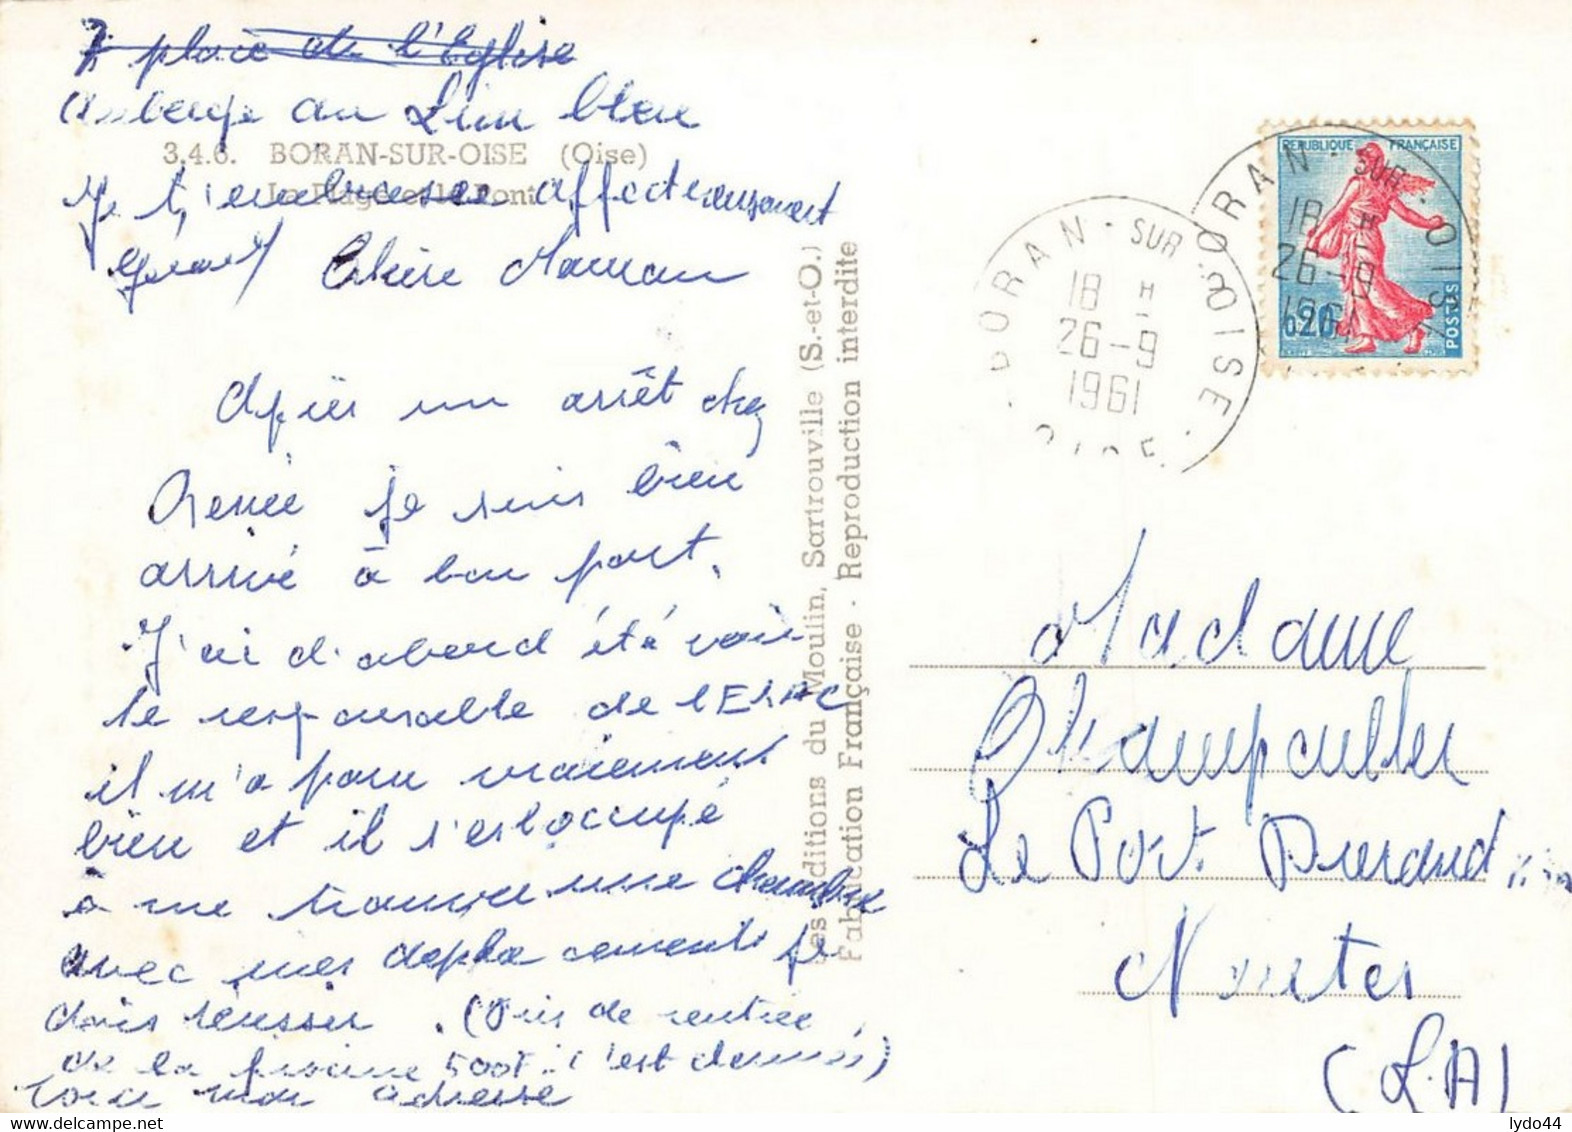 7 place de l'Eglise
Auberge au Lion bleu
3.4.6. BORAN-SUR-OISE (Oise)
La Plage et le Pont
Je t'embrasse affectueusement
Gérard
Chère Maman
Après un arrêt chez
Renée je suis bien
arrivé à bon port.
J'ai d'abord été voir
le responsable de l'
il m'a paru vraiment
bien et il s'est occupé
à me trouver une chambre
avec mes déplacements je
dois réussir. (Prix de rentrée
de la piscine 500F. c'est donné)
Voici mon adresse
Les Editions du Moulin, Sartrouville (S.-et-O.)
Fabrication Française - Reproduction interdite
REPUBLIQUE FRANÇAISE
0,20
POSTES
BORAN-SUR-OISE
18 H
26-9
1961
OISE
BORAN-SUR-OISE
18 H
26-9
1961
Madame
Le Port Durand
Nantes
(L.A)
lydo44